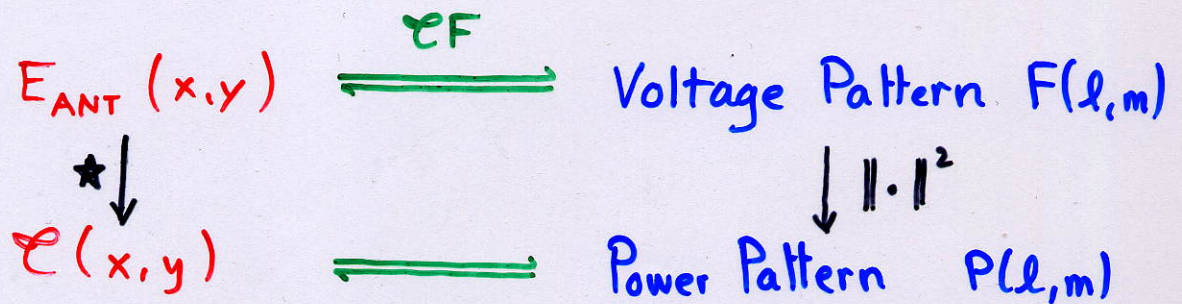 𝒞F
E_ANT (x,y) ⇌ Voltage Pattern F(l,m)
★↓ ↓ ‖·‖²
𝒞(x,y) ⇌ Power Pattern P(l,m)